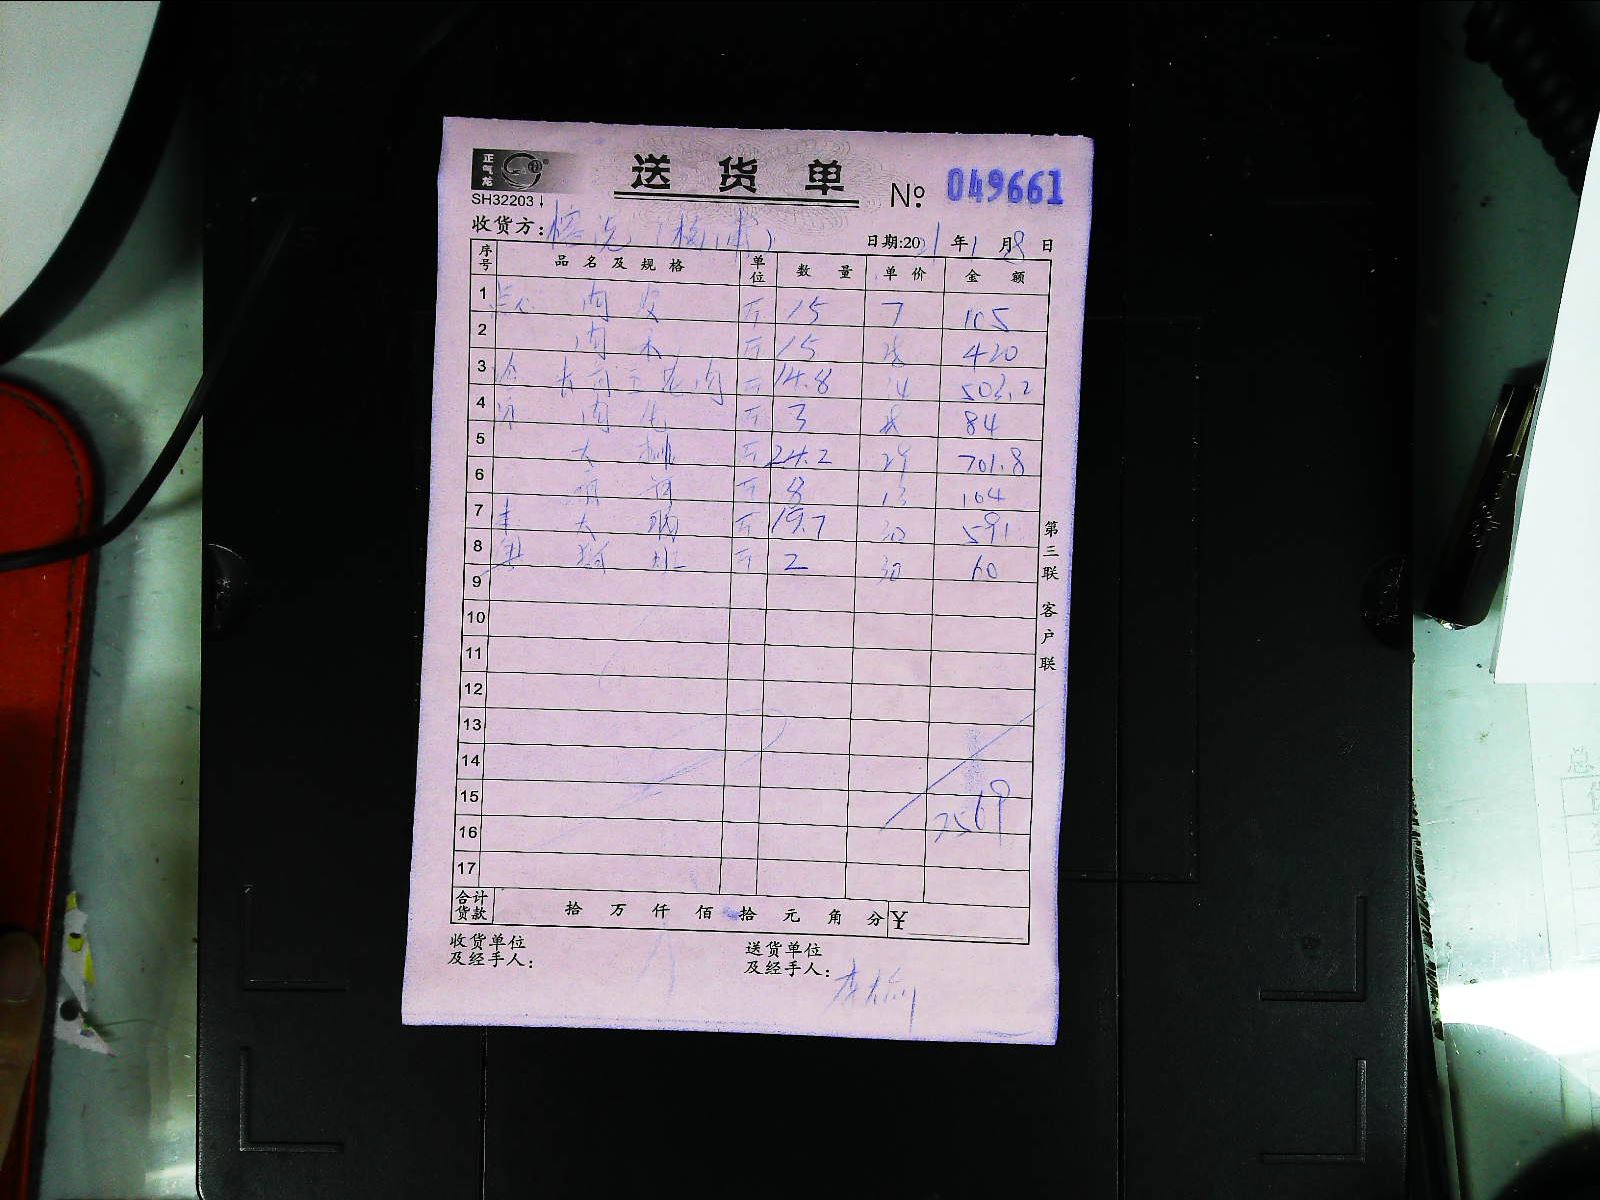 正气龙
送货单 № 049661
SH32203
收货方: 日期:2021年1月8日
序号 品名及规格 单位 数量 单价 金额
1 点心 肉皮 斤 15 7 105
2 肉 斤 15 28 420
3 三花肉 斤 14.8 34 503.2
4 肉 斤 3 28 84
5 大排 斤 24.2 29 701.8
6 斤 8 13 104
7 大 斤 19.7 30 591
8 斤 2 30 60
9
10
11
12
13
14
15
2569
16
17
合计货款 拾 万 仟 佰 拾 元 角 分 ¥
收货单位及经手人: 送货单位及经手人:
第三联 客户联